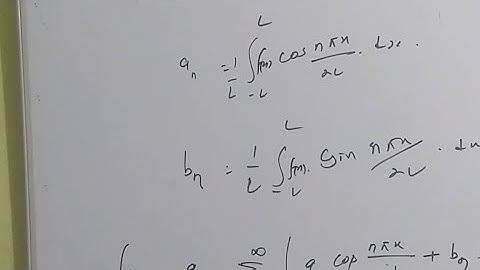 aₙ = 1/L ∫_{-L}^{L} f(x) cos nπx/2L . dx.
bₙ = 1/L ∫_{-L}^{L} f(x). sin nπx/2L . dx
a ∞ Σ a cos nπx + bₙ